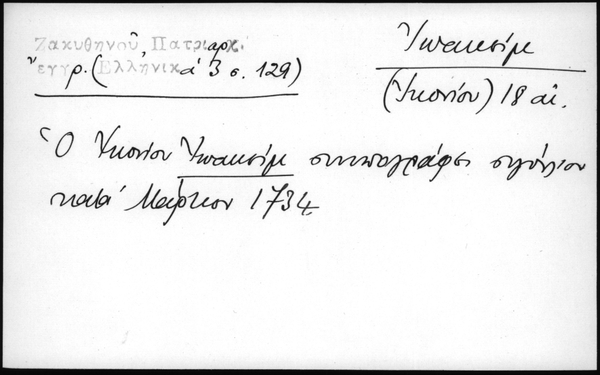 Ζακυθηνοῦ, Πατριαρχ.
ἔγγρ. (Ἑλληνικὰ 3 σ. 129)
Ἰωακείμ
(Ἰκονίου) 18 αἰ.
Ὁ Ἰκονίου Ἰωακείμ συνυπογράφει σιγίλλιον
κατά Μάρτιον 1734